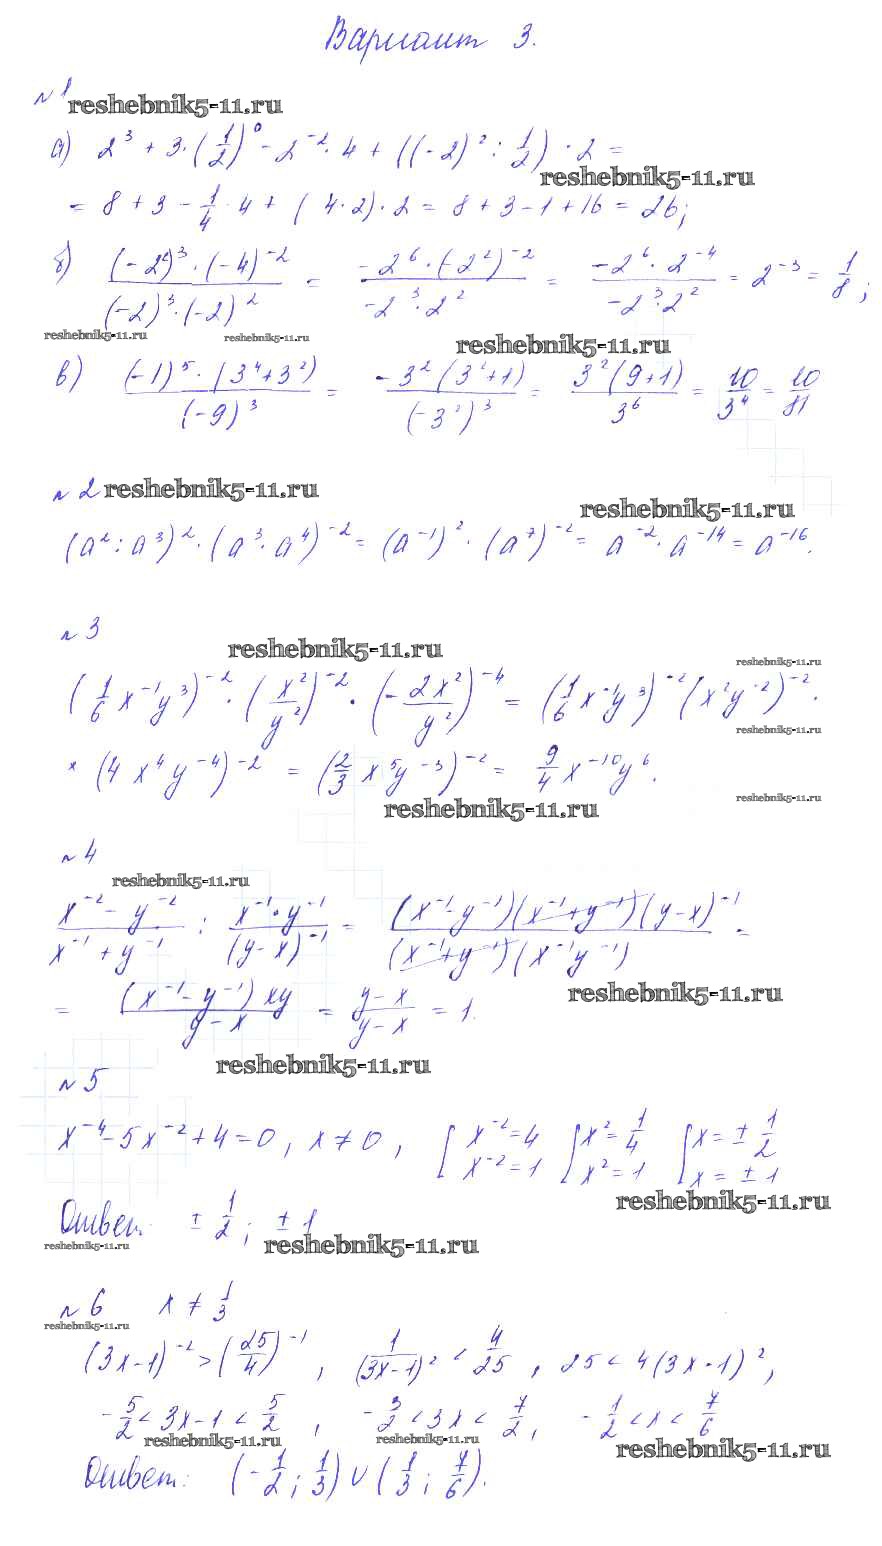 Вариант 3.
№1 reshebnik5-11.ru
а) 2³ + 3·(1/2)⁰ - 2⁻²·4 + ((-2)² : 1/2)·2 =
reshebnik5-11.ru
= 8 + 3 - 1/4·4 + (4·2)·2 = 8 + 3 - 1 + 16 = 26;
б) (-2²)³·(-4)⁻² / (-2)³·(-2)² = -2⁶·(-2²)⁻² / -2³·2² = -2⁶·2⁻⁴ / -2³·2² = 2⁻³ = 1/8;
reshebnik5-11.ru reshebnik5-11.ru reshebnik5-11.ru
в) (-1)⁵·(3⁴+3²) / (-9)³ = -3²(3²+1) / (-3²)³ = 3²(9+1) / 3⁶ = 10/3⁴ = 10/81
№2 reshebnik5-11.ru
reshebnik5-11.ru
(a² : a³)²·(a³·a⁴)⁻² = (a⁻¹)²·(a⁷)⁻² = a⁻²·a⁻¹⁴ = a⁻¹⁶.
№3
reshebnik5-11.ru
reshebnik5-11.ru
(1/6 x⁻¹y³)⁻²·(x²/y²)⁻²·(-2x²/y²)⁻⁴ = (1/6 x⁻¹y³)⁻²(x²y⁻²)⁻²·
reshebnik5-11.ru
× (4x⁴y⁻⁴)⁻² = (2/3 x⁵y⁻³)⁻² = 9/4 x⁻¹⁰y⁶.
reshebnik5-11.ru reshebnik5-11.ru
№4
reshebnik5-11.ru
x⁻² - y⁻² / x⁻¹ + y⁻¹ : x⁻¹·y⁻¹ / (y-x)⁻¹ = (x⁻¹-y⁻¹)(x⁻¹+y⁻¹)(y-x)⁻¹ / (x⁻¹+y⁻¹)(x⁻¹y⁻¹) =
reshebnik5-11.ru
= (x⁻¹-y⁻¹)xy / y-x = y-x / y-x = 1.
reshebnik5-11.ru
№5
x⁻⁴ - 5x⁻² + 4 = 0, x ≠ 0, [x⁻² = 4 x⁻² = 1 [x² = 1/4 x² = 1 [x = ± 1/2 x = ± 1
reshebnik5-11.ru
Ответ: ± 1/2; ± 1
reshebnik5-11.ru reshebnik5-11.ru
№6 x ≠ 1/3
reshebnik5-11.ru
(3x-1)⁻² > (25/4)⁻¹, 1/(3x-1)² < 4/25, 25 < 4(3x-1)²,
-5/2 < 3x-1 < 5/2, -3/2 < 3x < 7/2, -1/2 < x < 7/6
reshebnik5-11.ru reshebnik5-11.ru reshebnik5-11.ru
Ответ: (-1/2; 1/3) ∪ (1/3; 7/6).